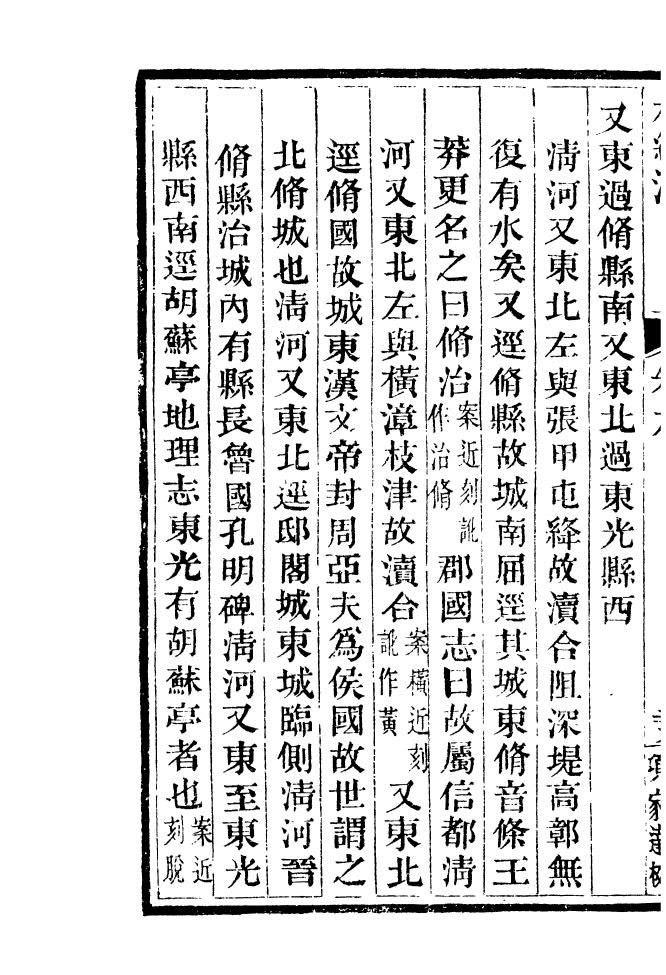 又東過脩縣南又東北過東光縣西
淸河又東北左與張甲屯絳故瀆合阻深堤高鄣無
復有水矣又逕脩縣故城南屈逕其城東脩音條王
莽更名之曰脩治案近刻訛作治脩郡國志曰故屬信都淸
河又東北左與橫漳枝津故瀆合案橫近刻訛作黃又東北
逕脩國故城東漢文帝封周亞夫爲侯國故世謂之
北脩城也淸河又東北逕邸閣城東城臨側淸河晉
脩縣治城內有縣長魯國孔明碑淸河又東至東光
縣西南逕胡蘇亭地理志東光有胡蘇亭者也案近刻脫